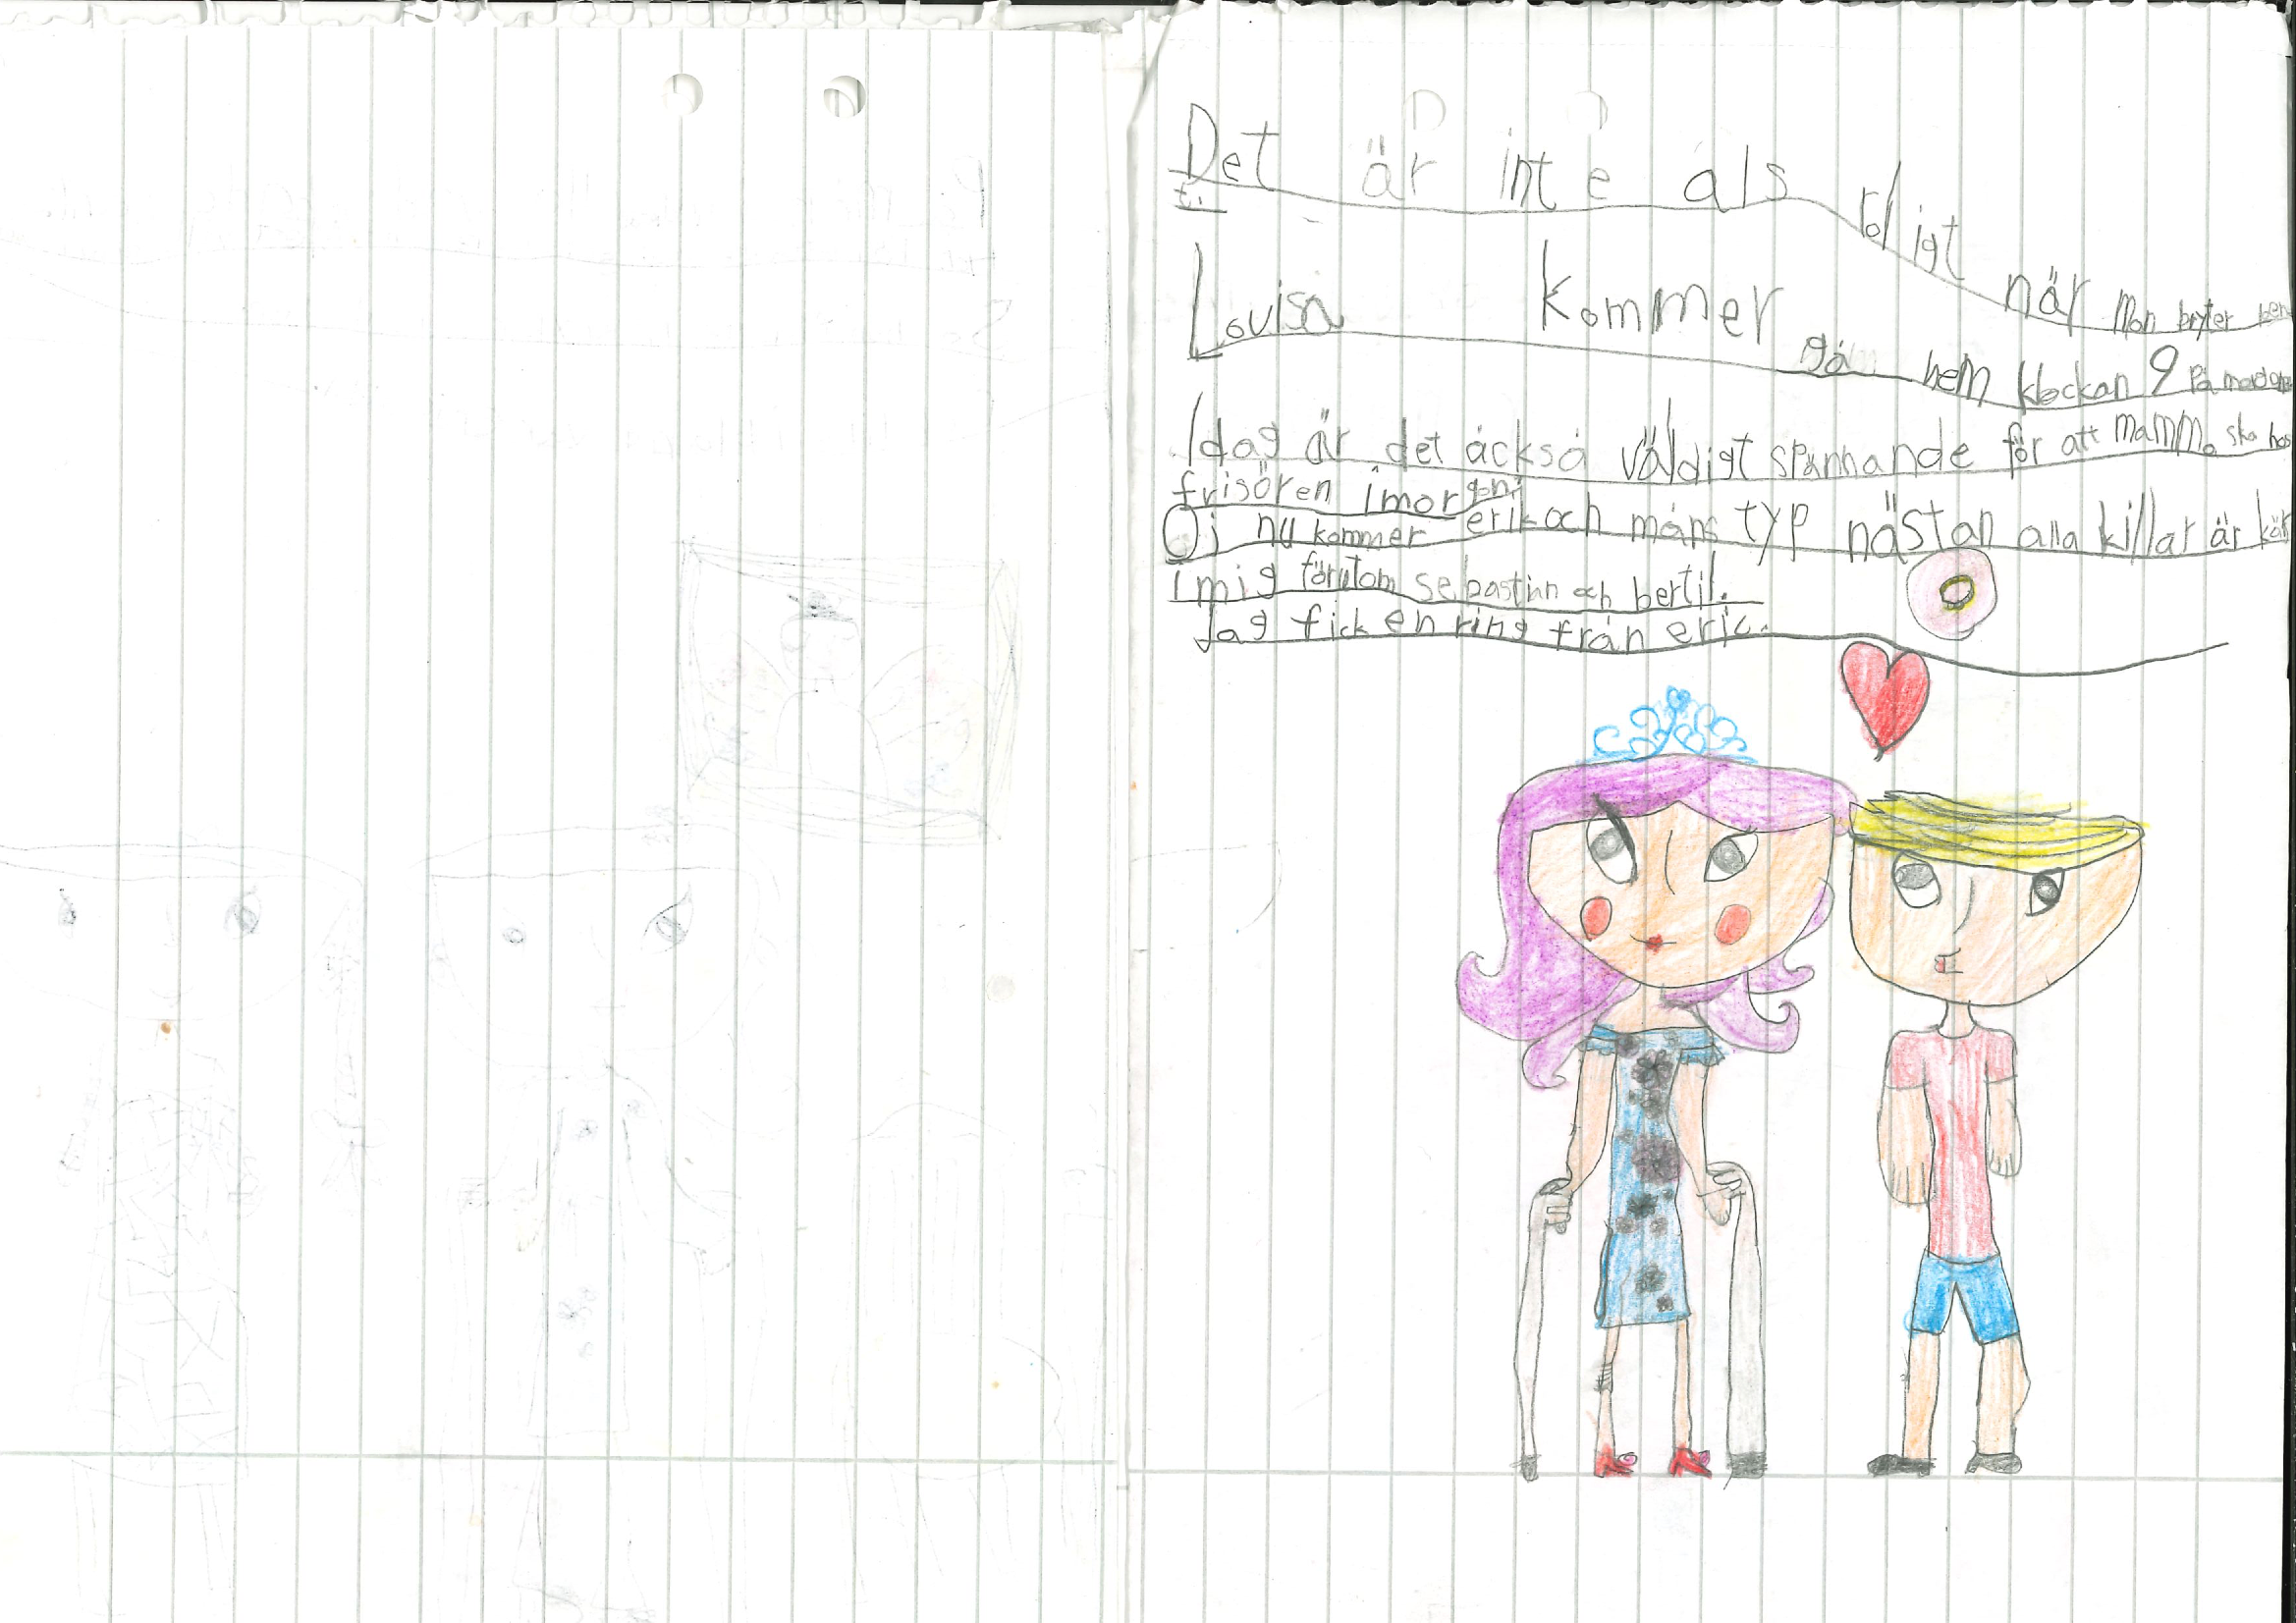 Det är inte als roligt när man bryter ben
t.
Lovisa kommer gå hem klockan 9 på
Idag är det åckså väldigt spännande för att mamma ska hos
frisören imorgon;
Oj nu kommer erik och måns typ nästan alla killar är kär
i mig förutom sebastian och bertil.
Jag fick en ring från eric.